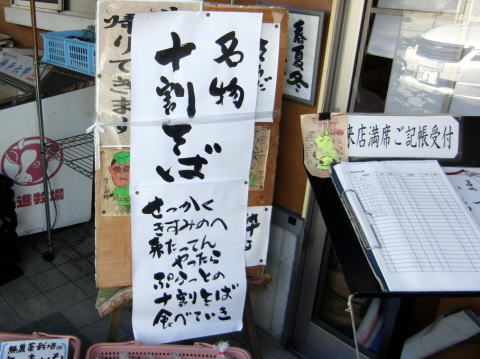 名物
十割そば
せっかく
きすみのへ
来たってん
やったら
ぷらっとの
十割そば
食べていき
帰りできます
春夏冬
来店満席ご記帳受付
進牧場
無農薬栽培の